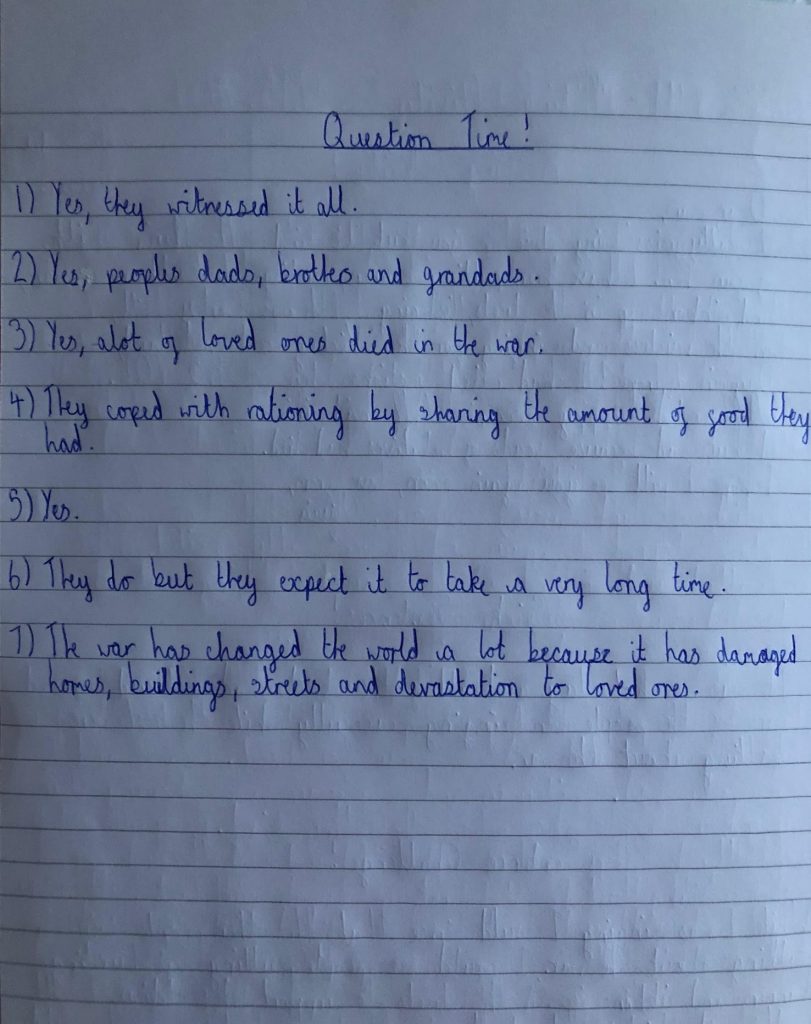 Question Time!
1) Yes, they witnessed it all.
2) Yes, peoples dads, brothes and grandads.
3) Yes, alot of loved ones died in the war.
4) They coped with rationing by sharing the amount of food they
had.
5) Yes.
6) They do but they expect it to take a very long time.
7) The war has changed the world a lot because it has damaged
homes, buildings, streets and devastation to loved ones.